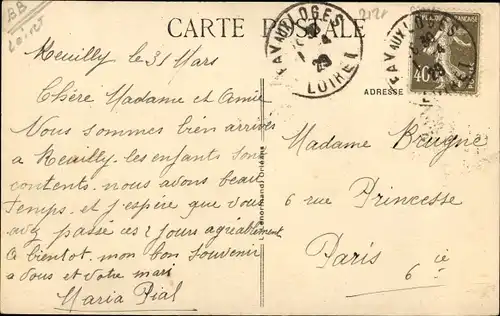 BB
Loiret
CARTE POSTALE
2128
FAY AUX LOGES
4
29
LOIRET
FAY AUX LOGES
29
FRANÇAISE
40c
ADRESSE
Reuilly le 31 Mars
Chère Madame et Amie
Nous sommes bien arrivés
a Reuilly - les enfants son
contents - nous avons beau
temps - et j'espère que vous
avez passée ces 2 jours agréablement
a bientot - mon bon souvenir
a vous et votre mari
Maria Pial
L. Lenormand, Orléans
Madame Brugne
6 rue Princesse
Paris
6 ié